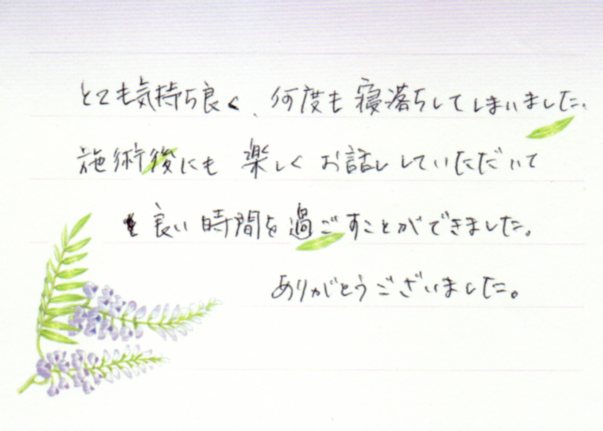 とても気持ち良く、何度も寝落ちしてしまいました。
施術後にも楽しくお話ししていただいて
良い時間を過ごすことができました。
ありがとうございました。